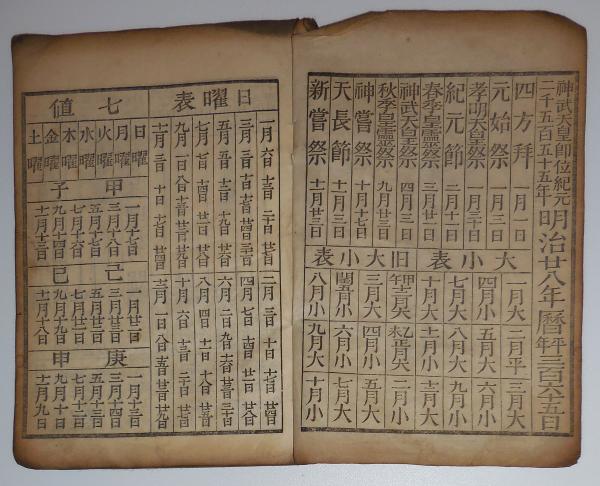 神武天皇即位紀元
二千五百五十五年
明治廿八年暦
平年三百六十五日
四方拜 一月一日
元始祭 一月三日
孝明天皇祭 一月三十日
紀元節 二月十一日
春季皇靈祭 三月廿一日
神武天皇祭 四月三日
秋季皇靈祭 九月廿三日
神嘗祭 十月十七日
天長節 十一月三日
新嘗祭 十一月廿三日
大小表
一月大 二月平 三月大
四月小 五月大 六月小
七月大 八月大 九月小
十月大 十一月小 十二月大
旧大小表
甲午十二月大 乙未正月大 二月小
三月大 四月小 五月大
閏五月小 六月小 七月大
八月小 九月大 十月小
日曜表
一月 六日 十三日 二十日 廿七日
二月 三日 十日 十七日 廿四日
三月 三日 十日 十七日 廿四日 卅一日
四月 七日 十四日 廿一日 廿八日
五月 五日 十二日 十九日 廿六日
六月 二日 九日 十六日 廿三日 三十日
七月 七日 十四日 廿一日 廿八日
八月 四日 十一日 十八日 廿五日
九月 一日 八日 十五日 廿二日 廿九日
十月 六日 十三日 二十日 廿七日
十一月 三日 十日 十七日 廿四日
十二月 一日 八日 十五日 廿二日 廿九日
七値
日曜
月曜
火曜
水曜
木曜
金曜
土曜
甲子
一月十七日
三月十八日
五月十七日
七月十六日
九月十四日
十一月十三日
己巳
一月廿二日
三月廿三日
五月廿二日
七月廿一日
九月十九日
十一月十八日
庚申
一月十三日
三月十四日
五月十三日
七月十二日
九月十日
十一月九日